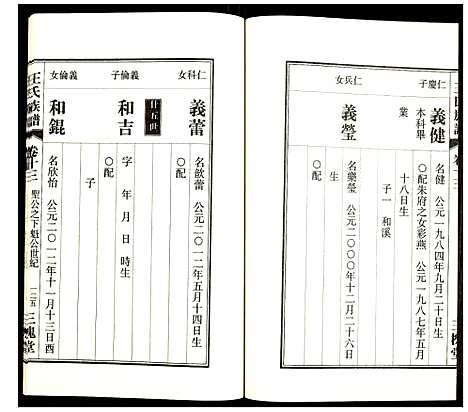 仁慶子
義健
名健 公元一九八四年九月二十日生
本科畢業
○配朱府之女彩燕 公元一九八七年五月
十八日生
子一 和溪
仁兵女
義瑩
名樂瑩 公元二○○○年十二月二十六日
生
○配
仁科女
義蕾
名歆蕾 公元二○一二年五月十四日生
○配
廿五世
義倫子
和吉
字 年 月 日 時生
○配
子
義倫女
和錕
名欣怡 公元二○一二年十一月十三日酉
○配
王氏族譜
卷十三
聖公之下魁公世紀
一二五
三槐堂